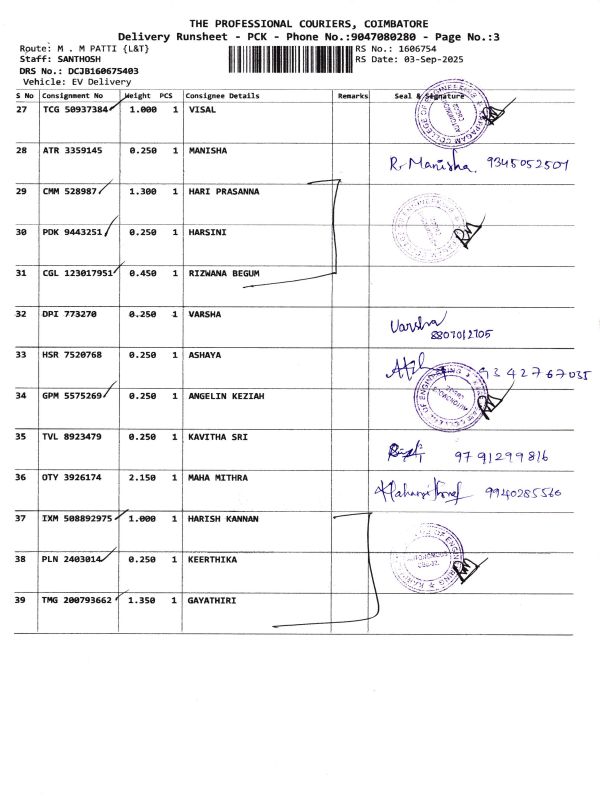 THE PROFESSIONAL COURIERS, COIMBATORE
Delivery Runsheet - PCK - Phone No.:9047080280 - Page No.:3
Route: M . M PATTI {L&T} RS No.: 1606754
Staff: SANTHOSH RS Date: 03-Sep-2025
DRS No.: DCJB160675403
Vehicle: EV Delivery
S No Consignment No Weight PCS Consignee Details Remarks Seal & Signature
27 TCG 50937384 1.000 1 VISAL
28 ATR 3359145 0.250 1 MANISHA R. Manisha. 9345052501
29 CMM 528987 1.300 1 HARI PRASANNA
30 PDK 9443251 0.250 1 HARSINI
31 CGL 123017951 0.450 1 RIZWANA BEGUM
32 DPI 773270 0.250 1 VARSHA Varsha
8807012705
33 HSR 7520768 0.250 1 ASHAYA 9342767035
34 GPM 5575269 0.250 1 ANGELIN KEZIAH
35 TVL 8923479 0.250 1 KAVITHA SRI 9791299816
36 OTY 3926174 2.150 1 MAHA MITHRA 9940285560
37 IXM 508892975 1.000 1 HARISH KANNAN
38 PLN 2403014 0.250 1 KEERTHIKA
39 TMG 200793662 1.350 1 GAYATHIRI